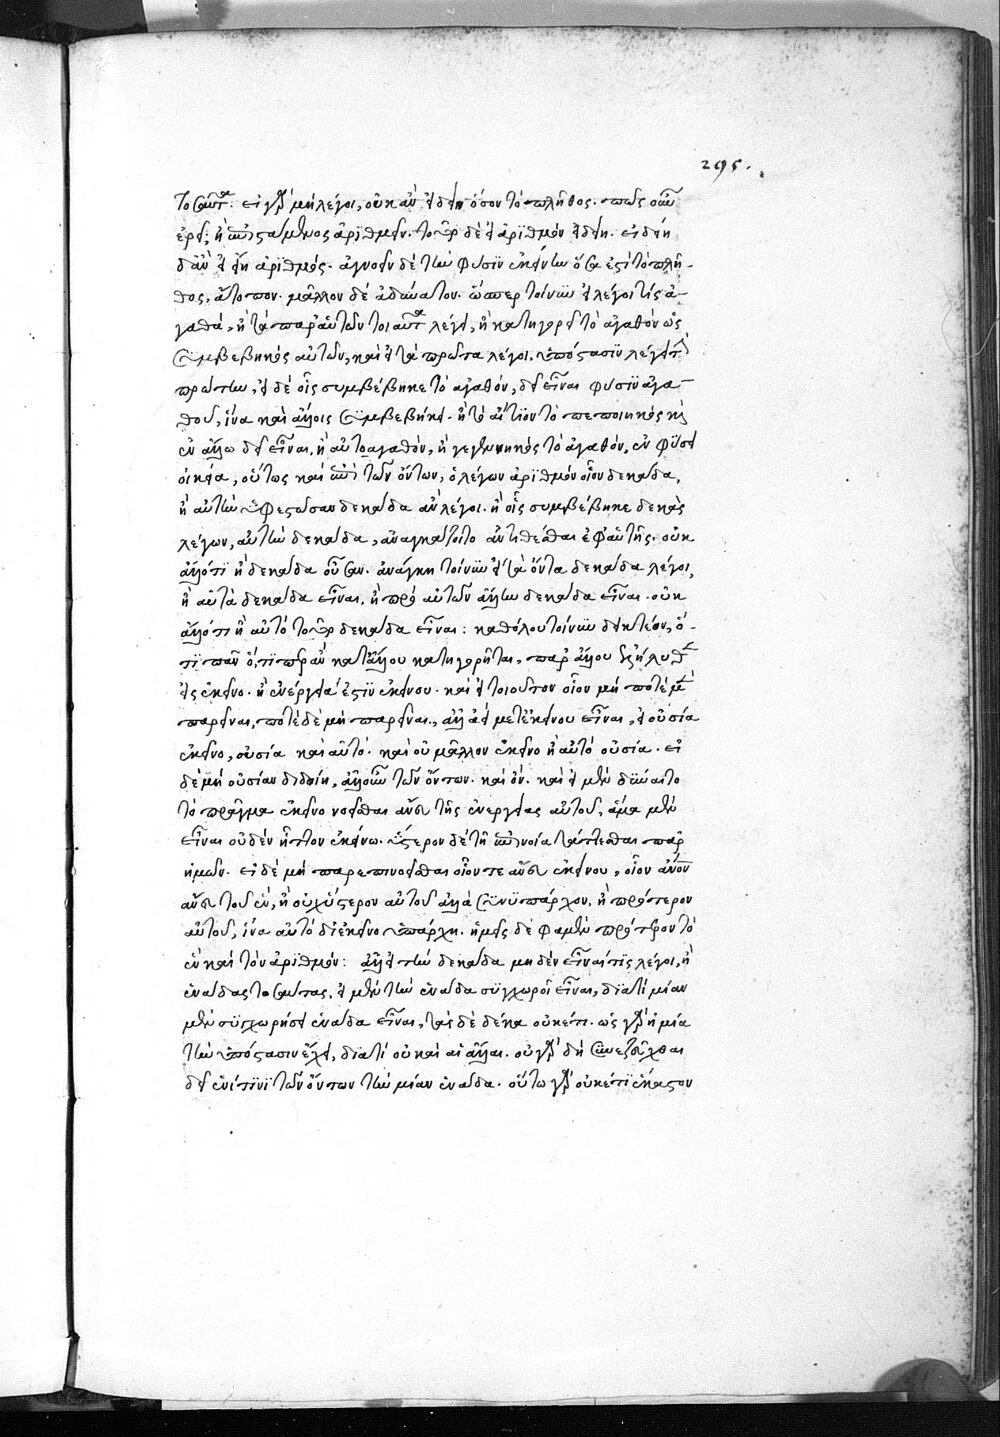 295.
τοσαῦτα. εἰ γὰρ μὴ λέγοι, οὐκ ἂν εἰδείη ὅσον τὸ πλῆθος. πῶς οὖν
ἐρεῖ; ἢ ἐπιστάμενος ἀριθμεῖν. τοῦτο δὲ εἰ ἀριθμὸν εἰδείη. εἰδείη
δ' ἂν εἰ εἴη ἀριθμός. ἀγνοεῖν δὲ τὴν φύσιν ἐκείνην ὅσα ἐστὶ τὸ πλῆ-
θος, ἄτοπον. μᾶλλον δὲ ἀδύνατον. ὥσπερ τοίνυν εἰ λέγοι τις ἀ-
γαθὰ, ἢ τὰ παρ' αὐτῶν τοιαῦτα λέγει, ἢ κατηγορεῖ τὸ ἀγαθὸν ὡς
συμβεβηκὸς αὐτῶν, καὶ εἰ τὰ πρῶτα λέγοι, ὑπόστασιν λέγει τὴν
πρώτην, εἰ δὲ οἷς συμβέβηκε τὸ ἀγαθὸν, δεῖ εἶναι φύσιν ἀγα-
θοῦ, ἵνα καὶ ἄλλοις συμβεβήκῃ. ἢ τὸ αἴτιον τὸ πεποιηκὸς καὶ
ἐν ἄλλῳ δεῖ εἶναι, ἢ αὐτοαγαθὸν, ἢ γεγεννηκὸς τὸ ἀγαθὸν, ἐν φύσει
οἰκείᾳ, οὕτως καὶ ἐπὶ τῶν ὄντων, ὁ λέγων ἀριθμὸν οἷον δεκάδα,
ἢ αὐτὴν ὑφεστῶσαν δεκάδα ἂν λέγοι. ἢ οἷς συμβέβηκε δεκὰς
λέγων, αὐτὴν δεκάδα, ἀναγκάζοιτο ἂν τίθεσθαι ἐφ' αὑτῆς. οὐκ
ἄλλό τι ἢ δεκάδα οὖσαν. ἀνάγκη τοίνυν εἰ τὰ ὄντα δεκάδα λέγοι,
ἢ αὐτὰ δεκάδα εἶναι, ἢ πρὸ αὐτῶν ἄλλην δεκάδα εἶναι. οὐκ
ἄλλό τι ἢ αὐτὸ τοῦτο δεκάδα εἶναι: καθόλου τοίνυν δεικτέον, ὅ-
τι πᾶν ὅ,τι περ ἂν κατ' ἄλλου κατηγορῆται, παρ' ἄλλου ἐλήλυθεν
εἰς ἐκεῖνο. ἢ ἐνέργειά ἐστιν ἐκείνου. καὶ εἰ τοιοῦτον οἷον μὴ ποτὲ μὲν
παρεῖναι, ποτὲ δὲ μὴ παρεῖναι, ἀλλ' ἀεὶ μετ' ἐκείνου εἶναι, εἰ οὐσία
ἐκεῖνο, οὐσία καὶ αὐτό. καὶ οὐ μᾶλλον ἐκεῖνο ἢ αὐτὸ οὐσία. εἰ
δὲ μὴ οὐσίαν διδοίη, ἀλλ' οὖν τῶν ὄντων. καὶ ὄν. καὶ εἰ μὲν δύναιτο
τὸ πρᾶγμα ἐκεῖνο νοεῖσθαι ἄνευ τῆς ἐνεργείας αὐτοῦ, ἅμα μὲν
εἶναι οὐδὲν ἧττον ἐκείνῳ. ὕστερον δὲ τῇ ἐπινοίᾳ τάττεσθαι παρ'
ἡμῶν. εἰ δὲ μὴ παρεπινοεῖσθαι οἷόν τε ἄνευ ἐκείνου, οἷον ἄνθρωπον
ἄνευ τοῦ ἓν, ἢ οὐχ' ὕστερον αὐτοῦ ἀλλὰ συνυπάρχον, ἢ πρότερον
αὐτοῦ, ἵνα αὐτὸ δι' ἐκεῖνο ὑπάρχῃ. ἡμεῖς δὲ φαμὲν πρότερον τὸ
ἓν καὶ τὸν ἀριθμόν: ἀλλ' εἰ τὴν δεκάδα μηδὲν εἶναί τις λέγοι, ἢ
ἑνάδας τοσαύτας, εἰ μὲν τὴν ἑνάδα συγχωροῖ εἶναι, διατί μίαν
μὲν συγχωρήσει ἑνάδα εἶναι, τὰς δὲ δέκα οὐκέτι. ὡς γὰρ ἡ μία
τὴν ὑπόστασιν ἔχει, διατί οὐ καὶ αἱ ἄλλαι. οὐ γὰρ δὴ συνεζεῦχθαι
δεῖ ἑνί τινι τῶν ὄντων τὴν μίαν ἑνάδα. οὕτω γὰρ οὐκέτι ἕκαστον